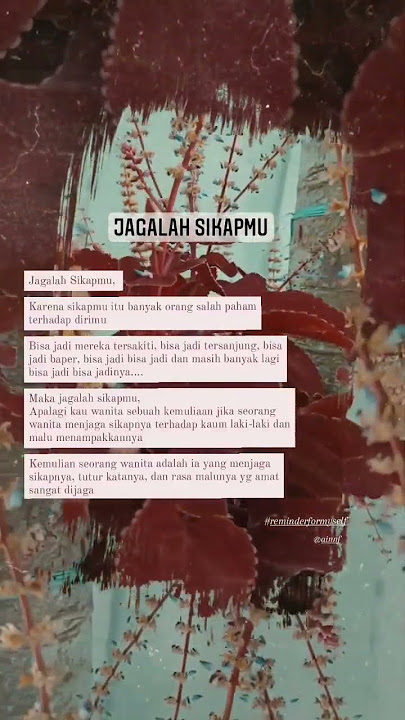 JAGALAH SIKAPMU
Jagalah Sikapmu,
Karena sikapmu itu banyak orang salah paham
terhadap dirimu
Bisa jadi mereka tersakiti, bisa jadi tersanjung, bisa
jadi baper, bisa jadi bisa jadi dan masih banyak lagi
bisa jadi bisa jadinya....
Maka jagalah sikapmu,
Apalagi kau wanita sebuah kemuliaan jika seorang
wanita menjaga sikapnya terhadap kaum laki-laki dan
malu menampakkannya
Kemulian seorang wanita adalah ia yang menjaga
sikapnya, tutur katanya, dan rasa malunya yg amat
sangat dijaga
#reminderformyself
@ainnf